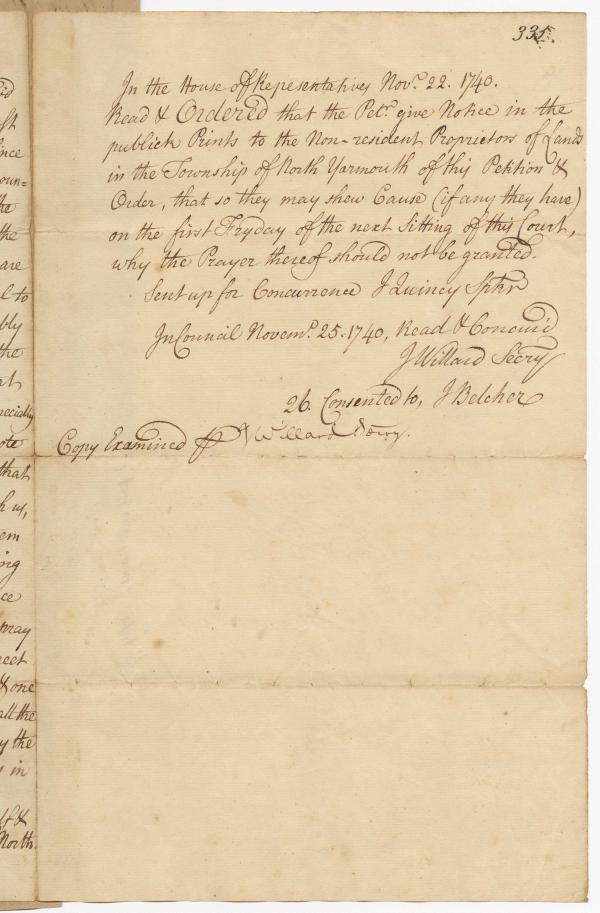 335.
In the House of Representatives Novr. 22. 1740.
Read & Ordered that the Petr. give Notice in the
publick Prints to the Non-resident Proprietors of Lands
in the Township of North Yarmouth of this Petition &
Order, that so they may shew Cause (if any they have)
on the first Fryday of the next Sitting of this Court,
why the Prayer thereof should not be granted.
Sent up for Concurrence J Quincy Spkr
In Council Novemr. 25. 1740, Read & Concur'd
J Willard Secry
26. Consented to, J Belcher
Copy Examined P J Willard Secry.
oun=
the
the
are
l to
bly
the
at
pecially
ote
that
h us,
em
ing
ce
may
eet
& one
all the
y the
s in
lf &
North